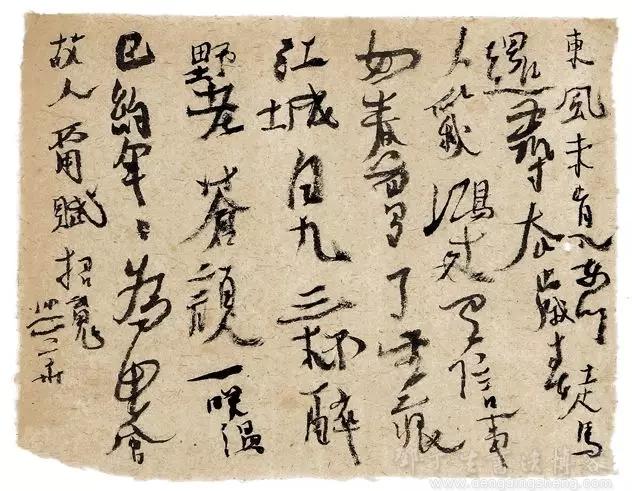 東風未肯入東門走馬
還尋去歲村
人似秋鴻來有信事
如春夢了無痕
江城白酒三杯醉
野老蒼顏一笑溫
已約年々為此會
故人不用賦招魂
www.dengdingsheng.com